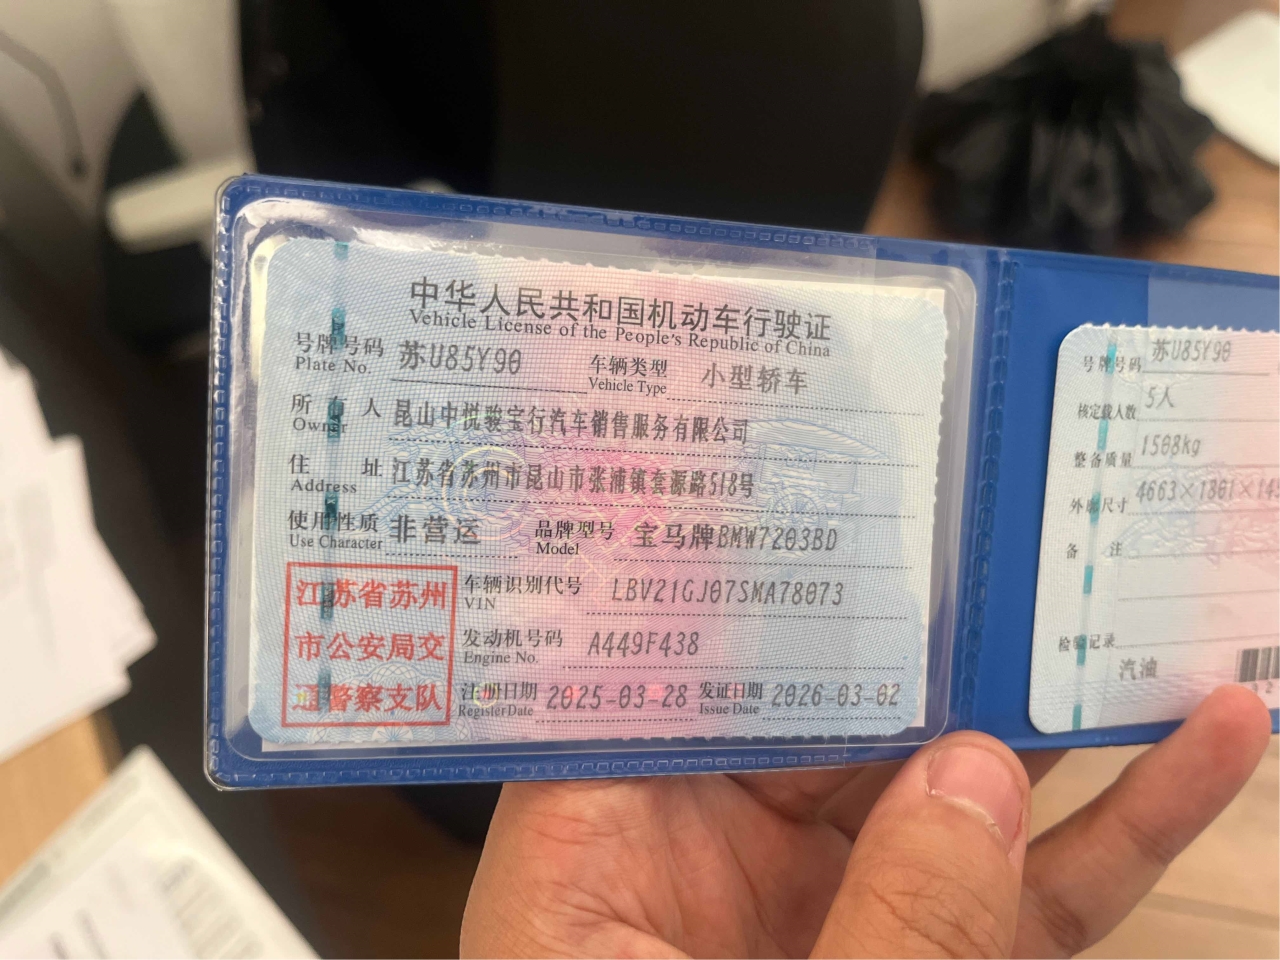 中华人民共和国机动车行驶证
Vehicle License of the People's Republic of China
号牌号码 苏U85Y90 车辆类型 小型轿车
Plate No. Vehicle Type
所有人 昆山中悦骏宝行汽车销售服务有限公司
Owner
住址 江苏省苏州市昆山市张浦镇套源路518号
Address
使用性质 非营运 品牌型号 宝马牌BMW7203BD
Use Character Model
江苏省苏州
市公安局交
通警察支队
车辆识别代号 LBV21GJ07SMA78073
VIN
发动机号码 A449F438
Engine No.
注册日期 2025-03-28 发证日期 2026-03-02
Register Date Issue Date
号牌号码 苏U85Y90
核定载人数 5人
整备质量 1508kg
外廓尺寸 4663×1861×14
备注
检验记录
汽油